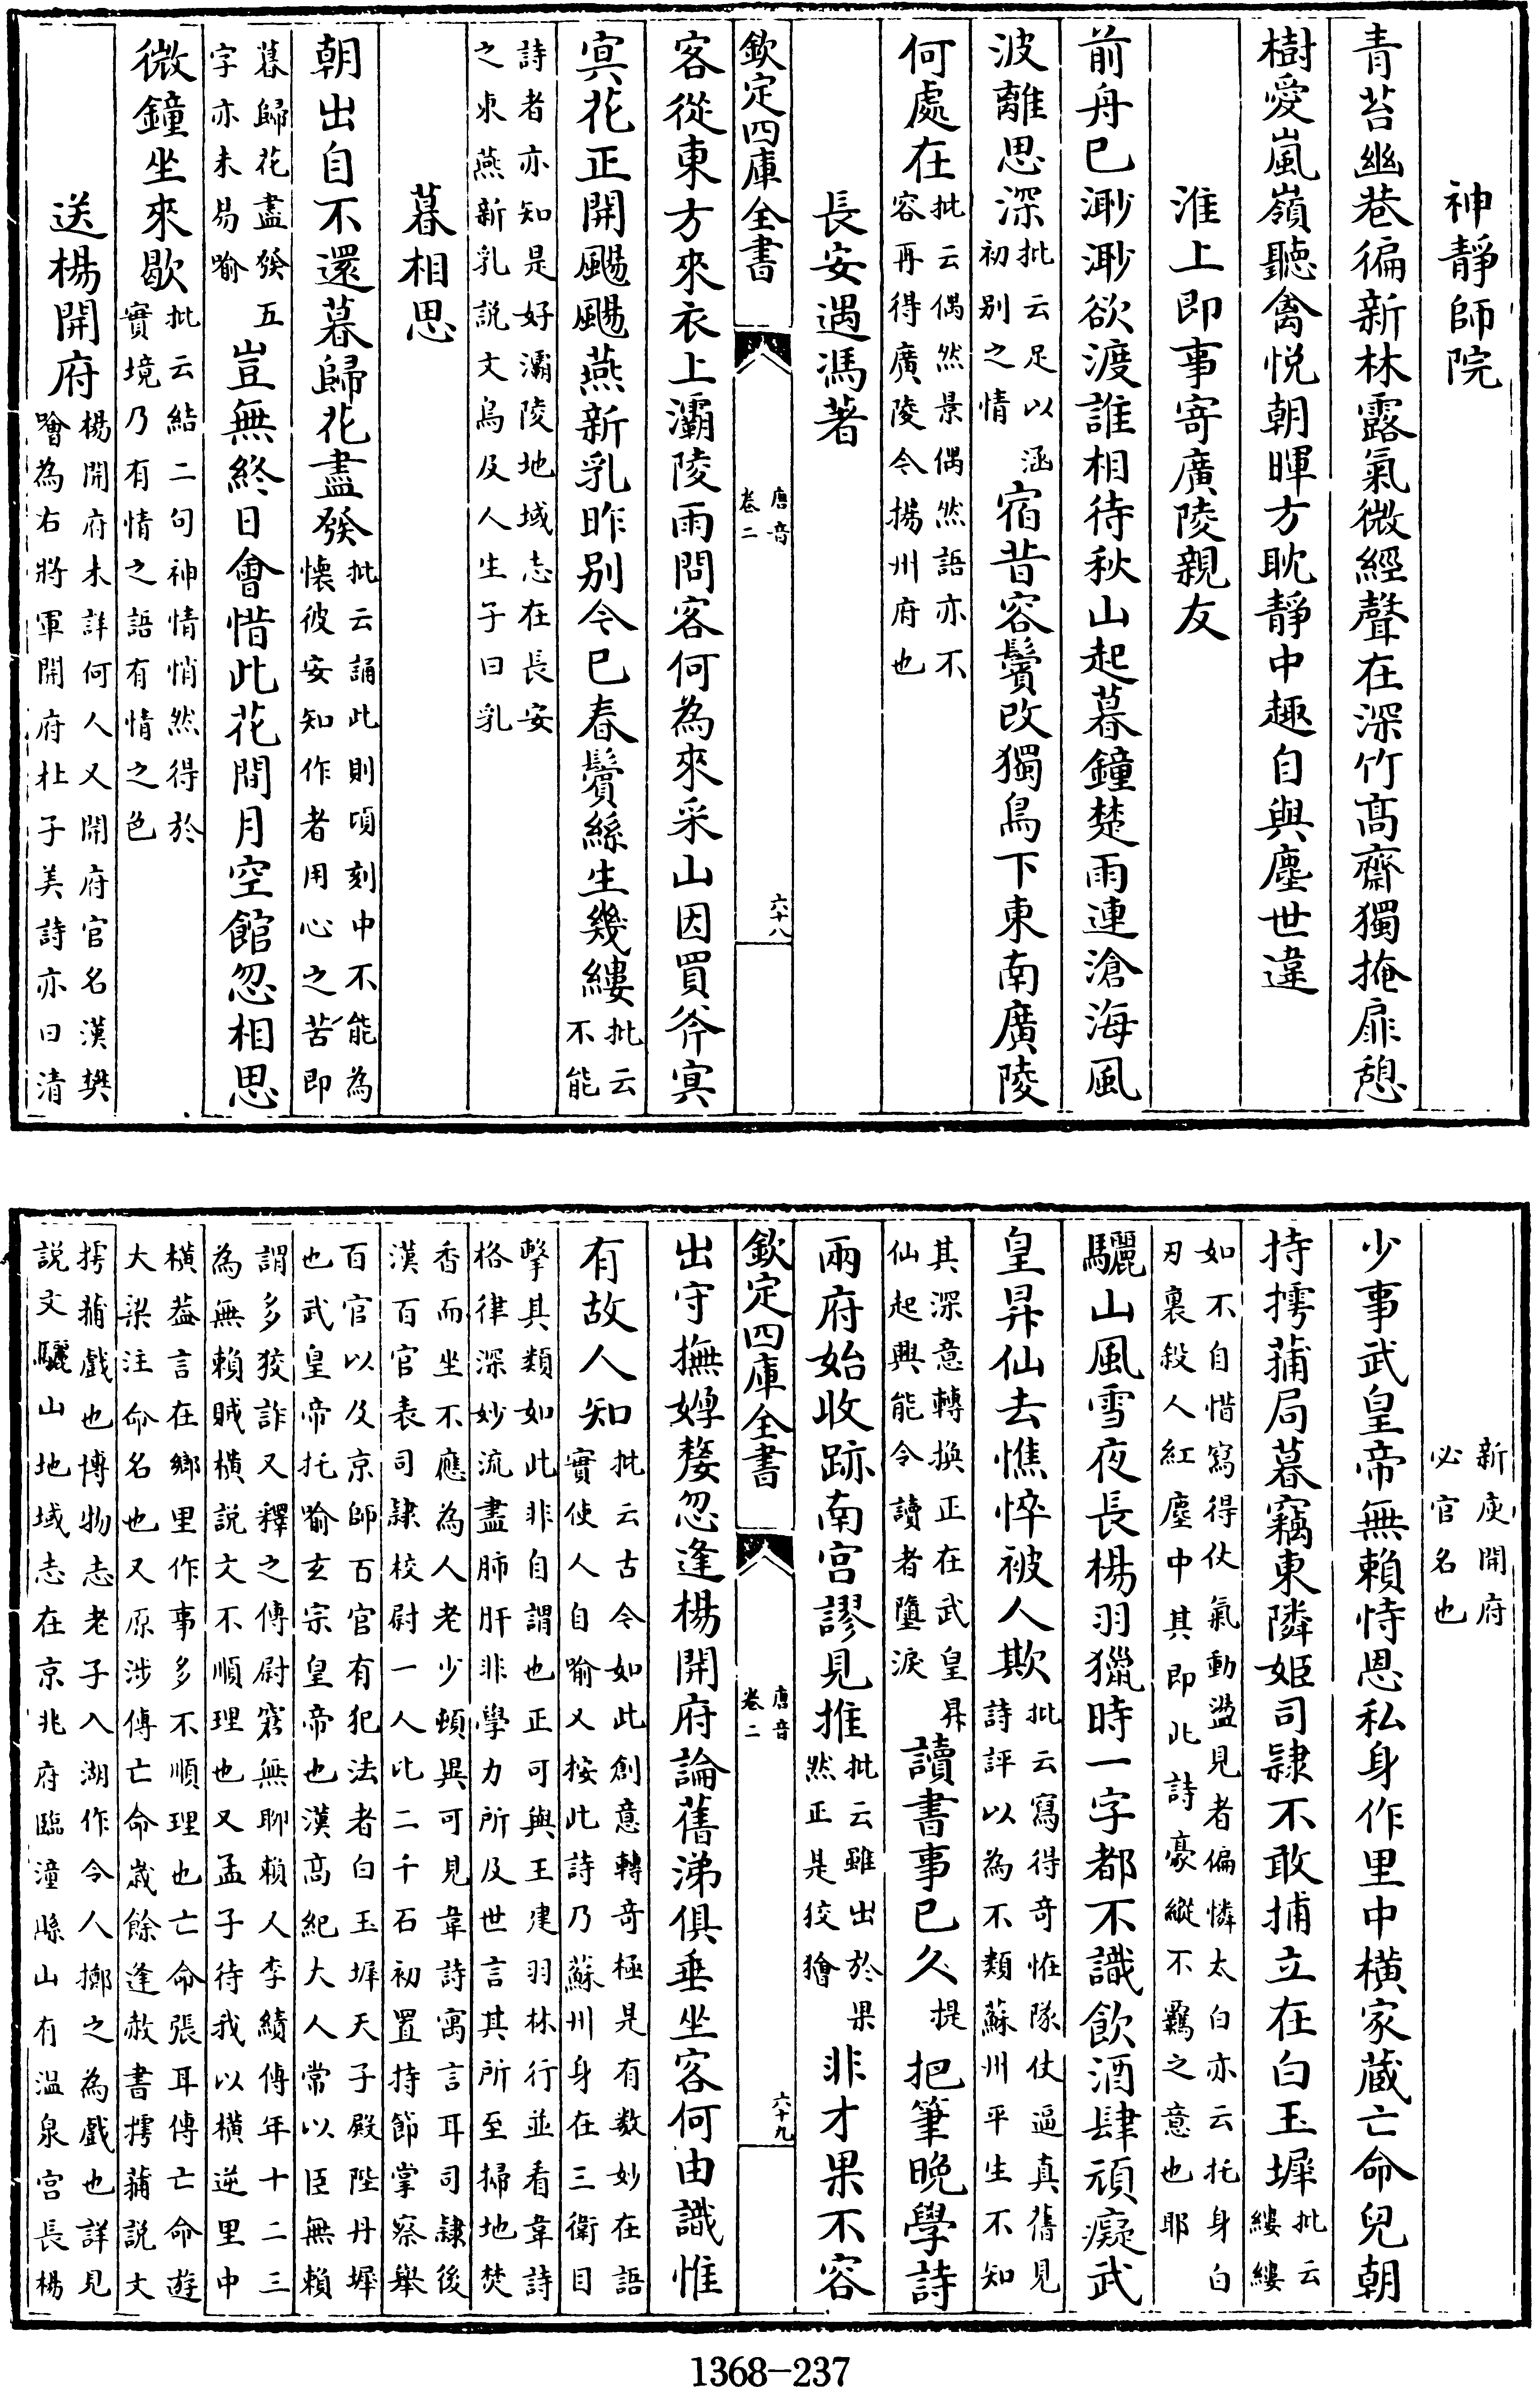 神靜師院
青苔幽巷徧新林露氣微經聲在深竹髙齋獨掩扉憩
樹愛嵐嶺聽禽悦朝暉方耽靜中趣自與塵世違
淮上即事寄廣陵親友
前舟已渺渺欲渡誰相待秋山起暮鐘楚雨連滄海風
波離思深批云足以涵初别之情宿昔容鬢改獨鳥下東南廣陵
何處在批云偶然景偶然語亦不容再得廣陵今揚州府也
長安遇馮著
欽定四庫全書
唐音
卷二
六十八
客從東方來衣上灞陵雨問客何為來采山因買斧㝠
㝠花正開颺颺燕新乳昨别今已春鬢絲生幾縷批云不能
詩者亦知是好灞陵地域志在長安之東燕新乳説文鳥及人生子曰乳
暮相思
朝出自不還暮歸花盡發批云誦此則頃刻中不能為懐彼安知作者用心之苦即
暮歸花盡發五字亦未易喻豈無終日會惜此花間月空館忽相思
微鐘坐來歇批云結二句神情悄然得於實境乃有情之語有情之色
送楊開府楊開府未詳何人又開府官名漢樊噲為右將軍開府杜子美詩亦曰清
新庾開府必官名也
少事武皇帝無賴恃恩私身作里中横家蔵亡命兒朝
持摴蒱局暮竊東隣姬司隷不敢捕立在白玉墀批云縷縷
如不自惜寫得仗氣動盪見者偏憐太白亦云托身白刃裏殺人紅塵中其即此詩豪縱不羈之意也耶
驪山風雪夜長楊羽獵時一字都不識飲酒肆頑癡武
皇昇仙去憔悴被人欺批云寫得奇恠隊仗逼真舊見詩評以為不類蘇州平生不知
其深意轉換正在武皇昇仙起興能令讀者墮淚讀書事已久提把筆晩學詩
兩府始收跡南宫謬見推批云雖出於果然正是狡獪非才果不容
欽定四庫全書
唐音
卷二
六十九
出守撫㷀嫠忽逢楊開府論舊涕俱垂坐客何由識惟
有故人知批云古今如此創意轉奇極是有数妙在語實使人自喻又按此詩乃蘇州身在三衛目
擊其類如此非自謂也正可與王建羽林行並看韋詩格律深妙流盡肺肝非學力所及世言其所至掃地焚
香而坐不應為人老少頓異可見韋詩寓言耳司隷後漢百官表司隷校尉一人比二千石初置持節掌察舉
百官以及京師百官有犯法者白玉墀天子殿陛丹墀也武皇帝托喻玄宗皇帝也漢髙紀大人常以臣無賴
謂多狡詐又釋之傳尉窮無聊賴人李績傳年十二三為無賴賊横説文不順理也又孟子待我以横逆里中
横葢言在鄉里作事多不順理也亡命張耳傳亡命遊大梁注命名也又原涉傳亡命嵗餘逢赦書摴蒱説文
摴蒱戲也博物志老子入湖作令人擲之為戲也詳見説文驪山地域志在京兆府臨潼縣山有温泉宫長楊
1368-237